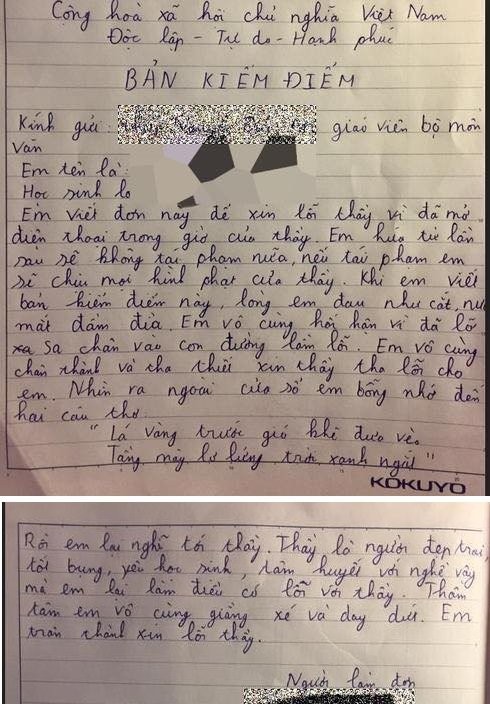 Cộng hoà xã hội chủ nghĩa Việt Nam
Độc lập - Tự do - Hạnh phúc
BẢN KIỂM ĐIỂM
Kính gửi: giáo viên bộ môn
Văn
Em tên là:
Học sinh lớ
Em viết đơn này để xin lỗi thầy vì đã mở
điện thoại trong giờ của thầy. Em hứa từ lần
sau sẽ không tái phạm nữa, nếu tái phạm em
sẽ chịu mọi hình phạt của thầy. Khi em viết
bản kiểm điểm này, lòng em đau như cắt, nước
mắt đầm đìa. Em vô cùng hối hận vì đã lỡ
xa sa chân vào con đường lầm lỗi. Em vô cùng
chân thành và tha thiết xin thầy tha lỗi cho
em. Nhìn ra ngoài cửa sổ em bỗng nhớ đến
hai câu thơ:
"Lá vàng trước gió khẽ đưa vèo
Tầng mây lơ lửng trời xanh ngắt"
KOKUYO
Rồi em lại nghĩ tới thầy. Thầy là người đẹp trai,
tốt bụng, yêu học sinh, tâm huyết với nghề vậy
mà em lại làm điều có lỗi với thầy. Thâm
tâm em vô cùng giằng xé và day dứt. Em
trân thành xin lỗi thầy.
Người làm đơn